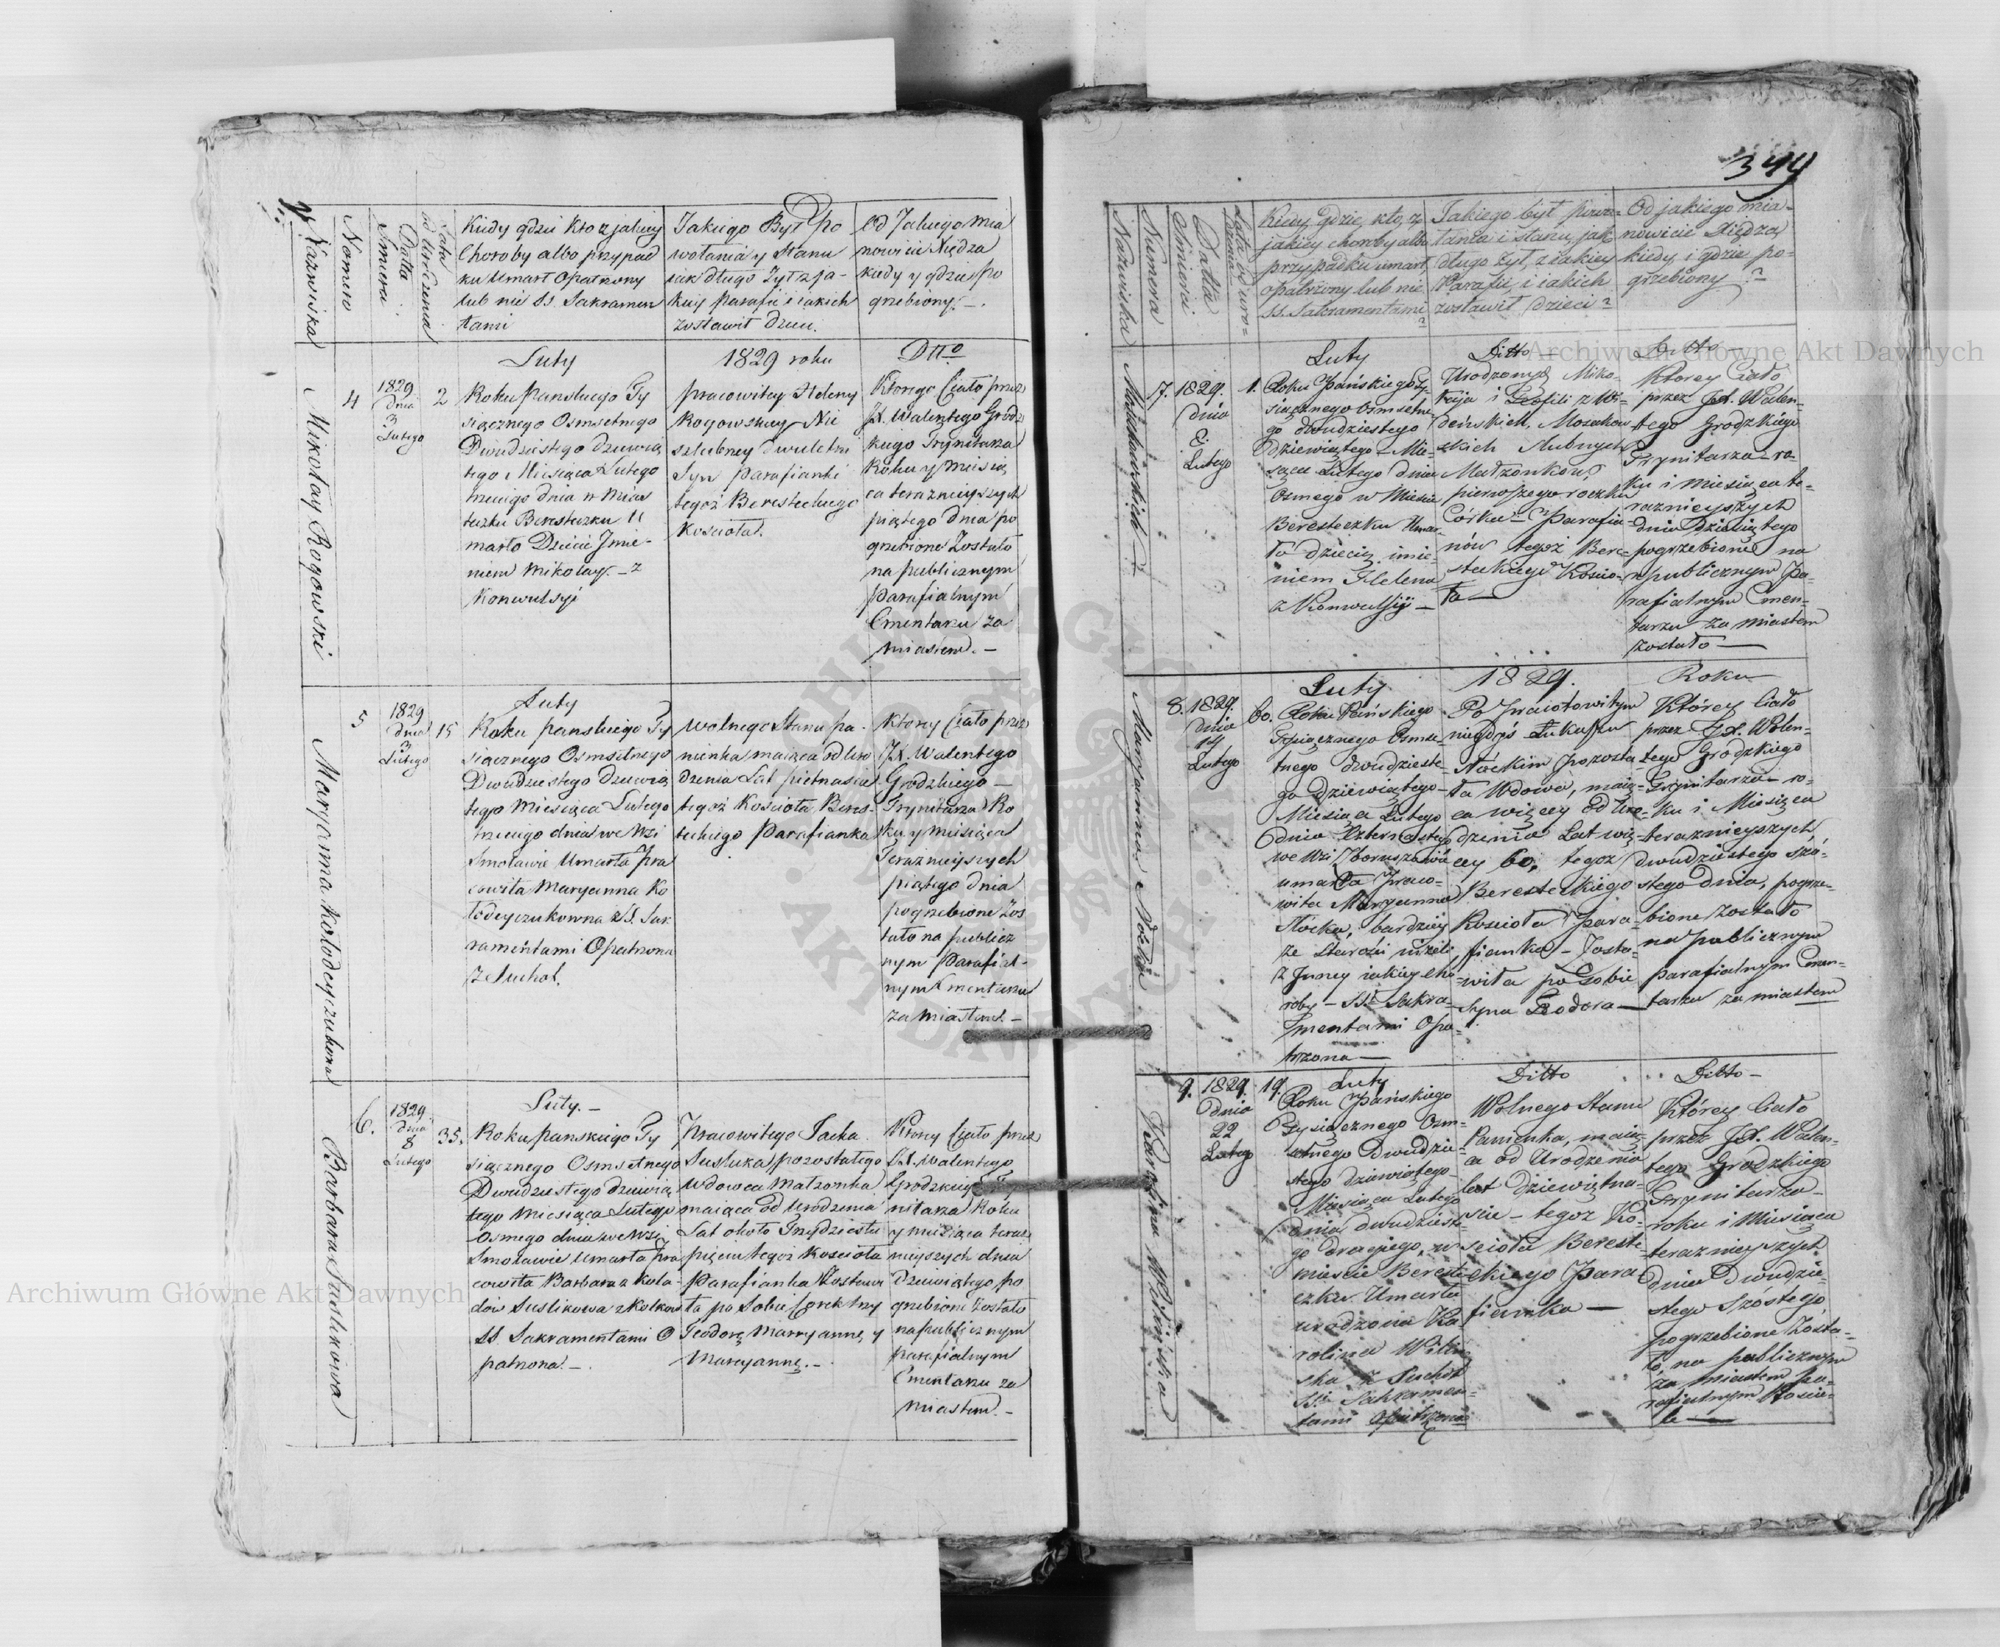 344
Nazwiska
Numero
Data
Smierci
Lata
od Urodzenia
Kiedy gdzie Kto z jakiey
Choroby albo przypad
ku Umarł Opatrzony
lub nie SS. Sakramen
tami
Jakiego Był Po
wołania y Stanu
iak długo Żył z ja-
kiey parafii i iakich
zostawił dzieci.
Od Jakiego Mia
nowicie Xiędza
kiedy y gdzie po
grzebiony. -
Mikołay Rogowski
4
1829
dnia
3
Lutego
2
Luty
Roku Panskiego Ty
siącznego Osmsetnego
Dwudziestego dziewią
tego Miesiąca Lutego
trzeciego dnia w Mias
teczku Beresteczku U
marło Dziecie Jmie-
niem Mikołay. - z
Konwulsyi
1829 roku
pracowitey Heleny
Rogowskiey Nie
szlubney dwuletni
Syn Parafianki
tegoż Beresteckiego
Kościoła.
Dtto
Którego Ciało przez
JX. Walentego Grodz
kiego Trynitarza
Roku y miesią
ca teraznieyszych
piątego dnia po
grzebione Zostało
na publicznym
Parafialnym
Cmentarzu za
miastem. -
Maryanna Kołodeyczukowna
5
1829
dnia
3
Lutego
15
Luty
Roku panskiego Ty
siącznego Osmsetnego
Dwudziestego dziewią
tego miesiąca Lutego
trzeciego dnia we Wsi
Smolawie Umarła Pra
cowita Maryanna Ko
łodeyczukowna SS. Sak
ramentami Opatrzona
z Suchot.
Wolnego Stanu pa-
nienka maiąca od Uro
dzenia Lat piętnascie
tegoż Kościoła Beres-
teckiego Parafianka
Ktorey Ciało przez
JX. Walentego
Grodzkiego -
Trynitarza Ro
ku y miesiąca
Teraznieyszych
piątego dnia
pogrzebione Zos
tało na publicz
nym Parafial-
nym Cmentarzu
za miastem. -
Barbara Suslikowa
6.
1829
dnia
8
Lutego
35.
Luty. -
Roku panskiego Ty
siącznego Osmsetnego
Dwudziestego dziewią
tego Miesiąca Lutego
Osmego dnia we Wsi
Smolawie Umarła Pra
cowita Barbara z Koła-
dow Suslikowa z Kolkow
SS. Sakramentami O
patrzona. -
Pracowitego Jacka
Susluka pozostałego
Wdowca Małżonka
maiąca od Urodzenia
Lat około Trzydziestu
pięciu tegoż Kościoła
Parafianka Zostawi
ła po Sobie Corek trzy
Teodorę Marryannę y
Maryannę. -
Ktorey Ciało przez
JX. Walentego
Grodzkiego Try
nitarza Roku
y miesiąca teraz
nieyszych dnia
Dziewiątego po
grzebione Zostało
na publicznym
parafialnym
Cmentarzu za
miastem. -
Nazwiska
Numera
Datta
Smierci
Lata od uro-
dzenia
Kiedy, gdzie, kto, z
jakiey choroby albo
przypadku umarł,
opatrzony lub nie
SS. Sakramentami?
Jakiego był powo-
łania i stanu, jak
długo żył, z jakiey
Parafii, i jakich
zostawił dzieci?
Od jakiego mia-
nowicie Xiędza
kiedy i gdzie po-
grzebiony?
7.
1829.
dnia
8.
Lutego
1.
Luty
Roku Pańskiego Ty-
siącznego Osmsetne-
go dwudziestego
dziewiątego Mie-
siąca Lutego dnia
Osmego w Mieście
Beresteczku Umar-
ło dziecię imie-
niem Helena
z Konwulsyi -
Ditto
Urodzonych Miko-
łaja i Teofili z Wi-
Mozakow-
skich slubnych
Małzonków,
pierwszego roczku
Córka - Parafia-
nów tegoż Bere-
steckiego Kościo-
ła -
Ditto
Którey Ciało
przez JX. Walen-
tego Grodzkiego
Trynitarza - ro-
ku i Miesiąca te-
raznieyszych
dnia Dziewiątego
pogrzebione na
publicznym Pa-
rafialnym Cmen-
tarzu za miastem
zostało -
Maryanna Nocka
8.
1829.
dnia
14
Lutego
60.
Luty
Roku Pańskiego
Tysiącznego Osmse-
tnego dwudzieste-
go dziewiątego -
Miesiąca Lutego
dnia Czternastego
we Wsi
umarła Praco-
wita Maryanna
Nocka, bardziey
ze Starości niżeli
z Inney jakiey cho
roby - SS. Sakra-
mentami Opa-
trzona -
1829.
Po Pracowitym
niegdyś Łukaszu
Nockim pozosta
ła Wdowa, maią-
ca więcey od Uro-
dzenia Lat wię-
cey 60, tegoż
Beresteckiego
Kościoła Para-
fianka - Zosta-
wiła po Sobie
Syna Teodora -
Roku
Którey Ciało
przez JX. Walen-
tego Grodzkiego
Trynitarza - ro-
ku i Miesiąca
teraznieyszych,
dwudziestego szó-
stego dnia, pogrze-
bione zostało
na publicznym
parafialnym Cmen-
tarzu za miastem
Karolina Wilińska
9.
1829.
dnia
22
Lutego
19.
Luty
Roku Pańskiego
Tysiącznego Osm-
setnego Dwudzie-
stego dziewiątego -
Miesiąca Lutego
dnia dwudzieste-
go drugiego, w
mieście Bereste-
czku Umarła
urodzona Ka-
rolina Wiliń-
ska z Suchot
SS. Sakramen-
tami opatrzona
Ditto
Wolnego Stanu
Panienka, maią-
ca od Urodzenia
lat dziewiętna-
ście - tegoż Ko-
ścioła Bereste-
ckiego Para
fianka -
Ditto -
Którey Ciało
przez JX. Walen-
tego Grodzkiego
Trynitarza -
roku i Miesiąca
teraznieyszych
dnia Dwudzie-
stego Szóstego,
pogrzebione Zosta-
ło, na publicznym
za miastem pa-
rafialnym Koscie-
le -
Archiwum Główne Akt Dawnych
Archiwum Główne Akt Dawnych
ARCHIWUM GŁÓWNE
AKT DAWNYCH